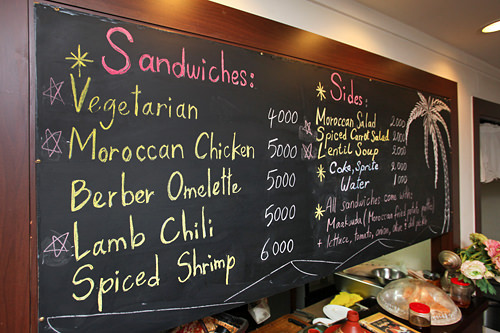 Sandwiches:
Vegetarian 4000
Moroccan Chicken 5000
Berber Omelette 5000
Lamb Chili 5000
Spiced Shrimp 6000
Sides:
Moroccan Salad 2000
Spiced Carrot Salad 2000
Lentil Soup 2000
Coke, Sprite 2000
Water 1000
All sandwiches come with:
Maakouda (Moroccan fried potato puffs)
+ lettuce, tomato, onion, olive &